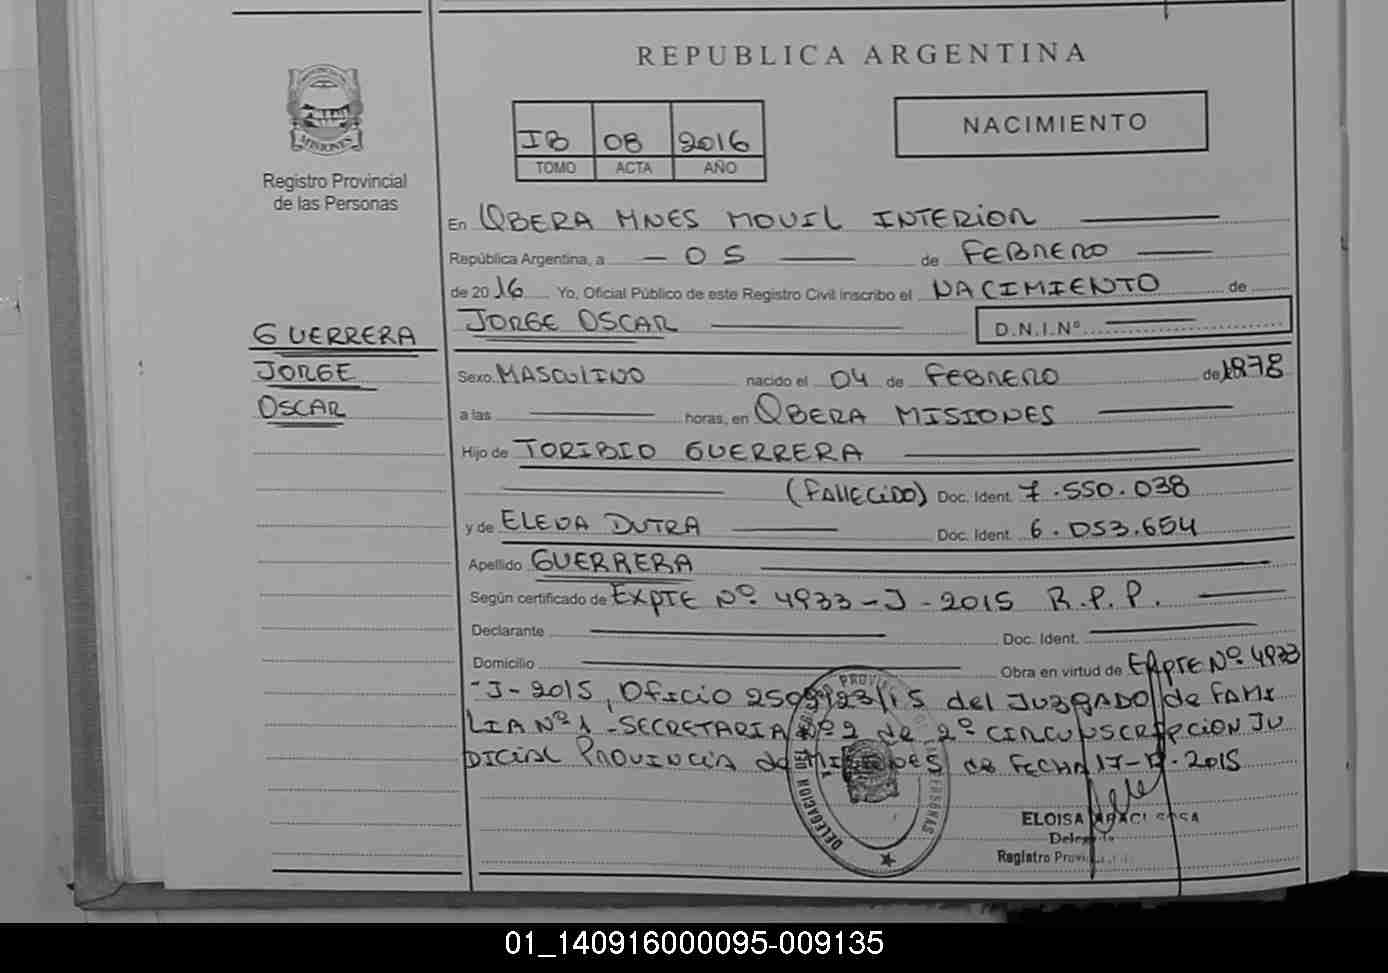 REPUBLICA ARGENTINA
MISIONES
Registro Provincial
de las Personas
IB 08 2016
TOMO ACTA AÑO
NACIMIENTO
En OBERA MNES MOVIL INTERIOR
República Argentina, a - 05 de FEBRERO
de 2016 Yo, Oficial Público de este Registro Civil inscribo el NACIMIENTO de
JORGE OSCAR D.N.I.Nº
GUERRERA
JORGE
OSCAR
Sexo MASCULINO nacido el 04 de FEBRERO de 1978
a las horas, en OBERA MISIONES
Hijo de TORIBIO GUERRERA
(FALLECIDO) Doc. Ident. 7.550.038
y de ELEVA DUTRA Doc. Ident. 6.053.654
Apellido GUERRERA
Según certificado de EXPTE Nº 4933-J-2015 R.P.P.
Declarante Doc. Ident.
Domicilio Obra en virtud de EXPTE Nº 4933
-J-2015, OFICIO del JUZGADO de FAMI
LIA Nº 1 - SECRETARIA Nº 2 de 2º CIRCUNSCRIPCION JU
DICIAL PROVINCIA de MISIONES de FECHA 2015
DELEGACION PERSONAS
ELOISA
Registro
01_140916000095-009135